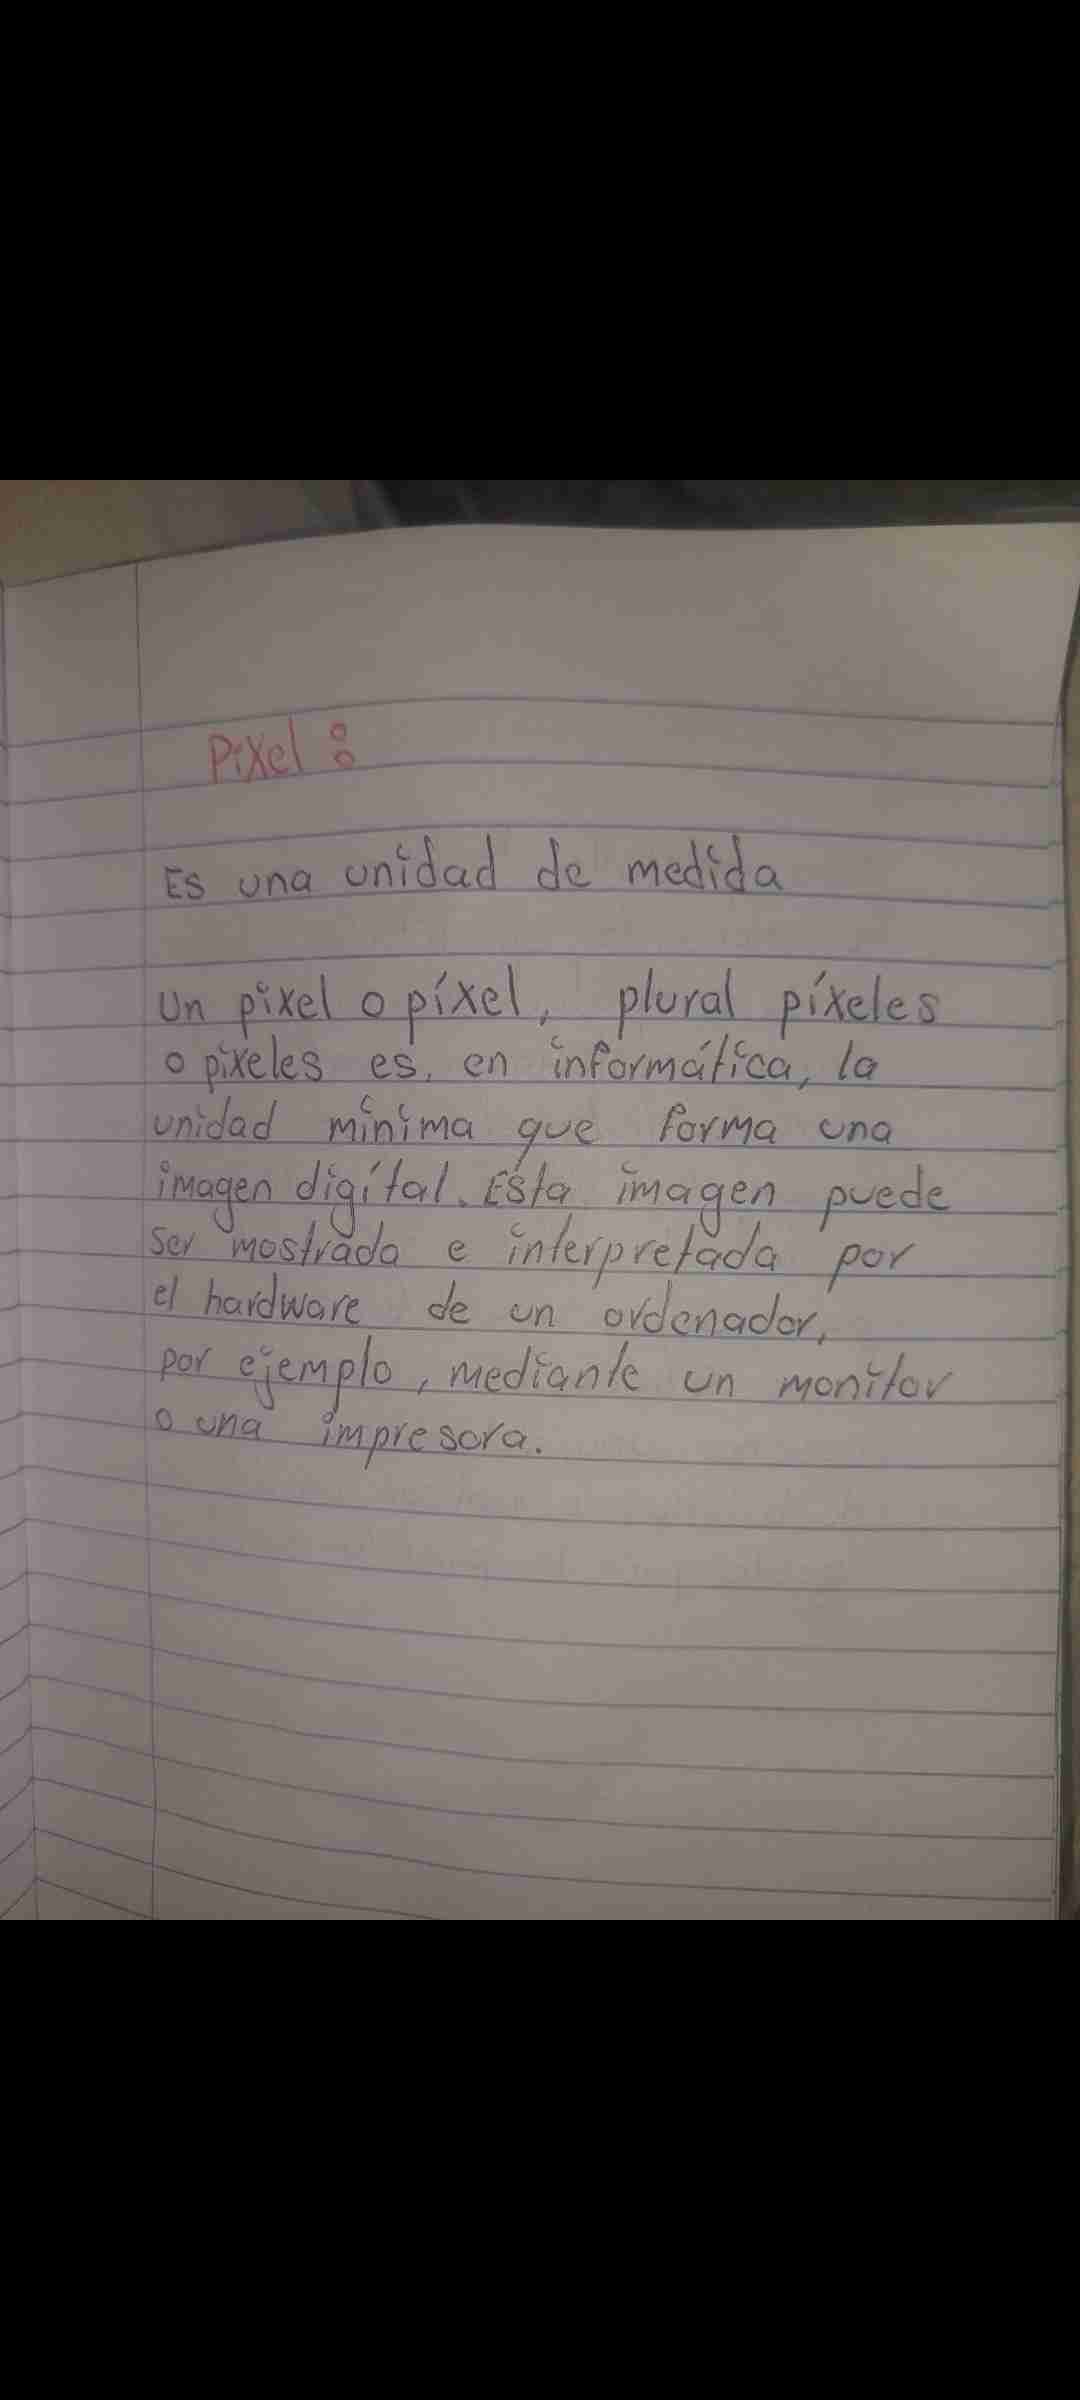 Pixel:
Es una unidad de medida
Un pixel o píxel, plural píxeles
o pixeles es, en informática, la
unidad mínima que forma una
imagen digítal. Esta imagen puede
ser mostrada e interpretada por
el hardware de un ordenador,
por ejemplo, mediante un monitor
o una impresora.